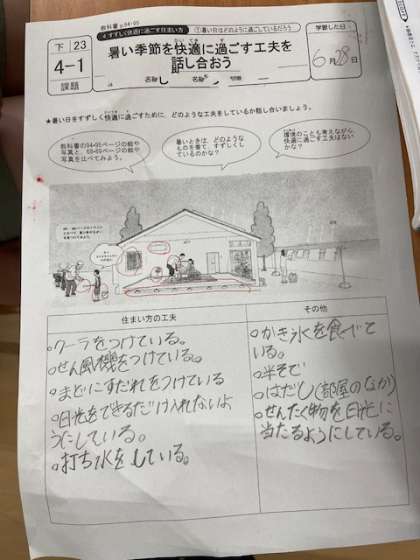 教科書 p.94-95
4 すずしく快適に過ごす住まい方 ①暑い日はどのように過ごしているだろう
学習した日
下 23
4-1
課題
暑い季節を快適に過ごす工夫を
話し合おう
6月28日
★暑い日をすずしく快適に過ごすために、どのような工夫をしているか話し合いましょう。
暑いときは、どのような
ものを着て、すずしくし
ているのかな?
環境のことも考えながら、
快適に過ごす工夫はない
かな?
写真を比べてみよう。
住まい方の工夫
その他
○クーラをつけている。
○せん風機をつけている。
○まどにすだれをつけている
○日光をできるだけ入れないよ
うにしている。
○打ち水をしている。
○かき氷を食べて
いる。
○半そで
○はだし(部屋のなか)
○せんたく物を日光に
当たるようにしている。